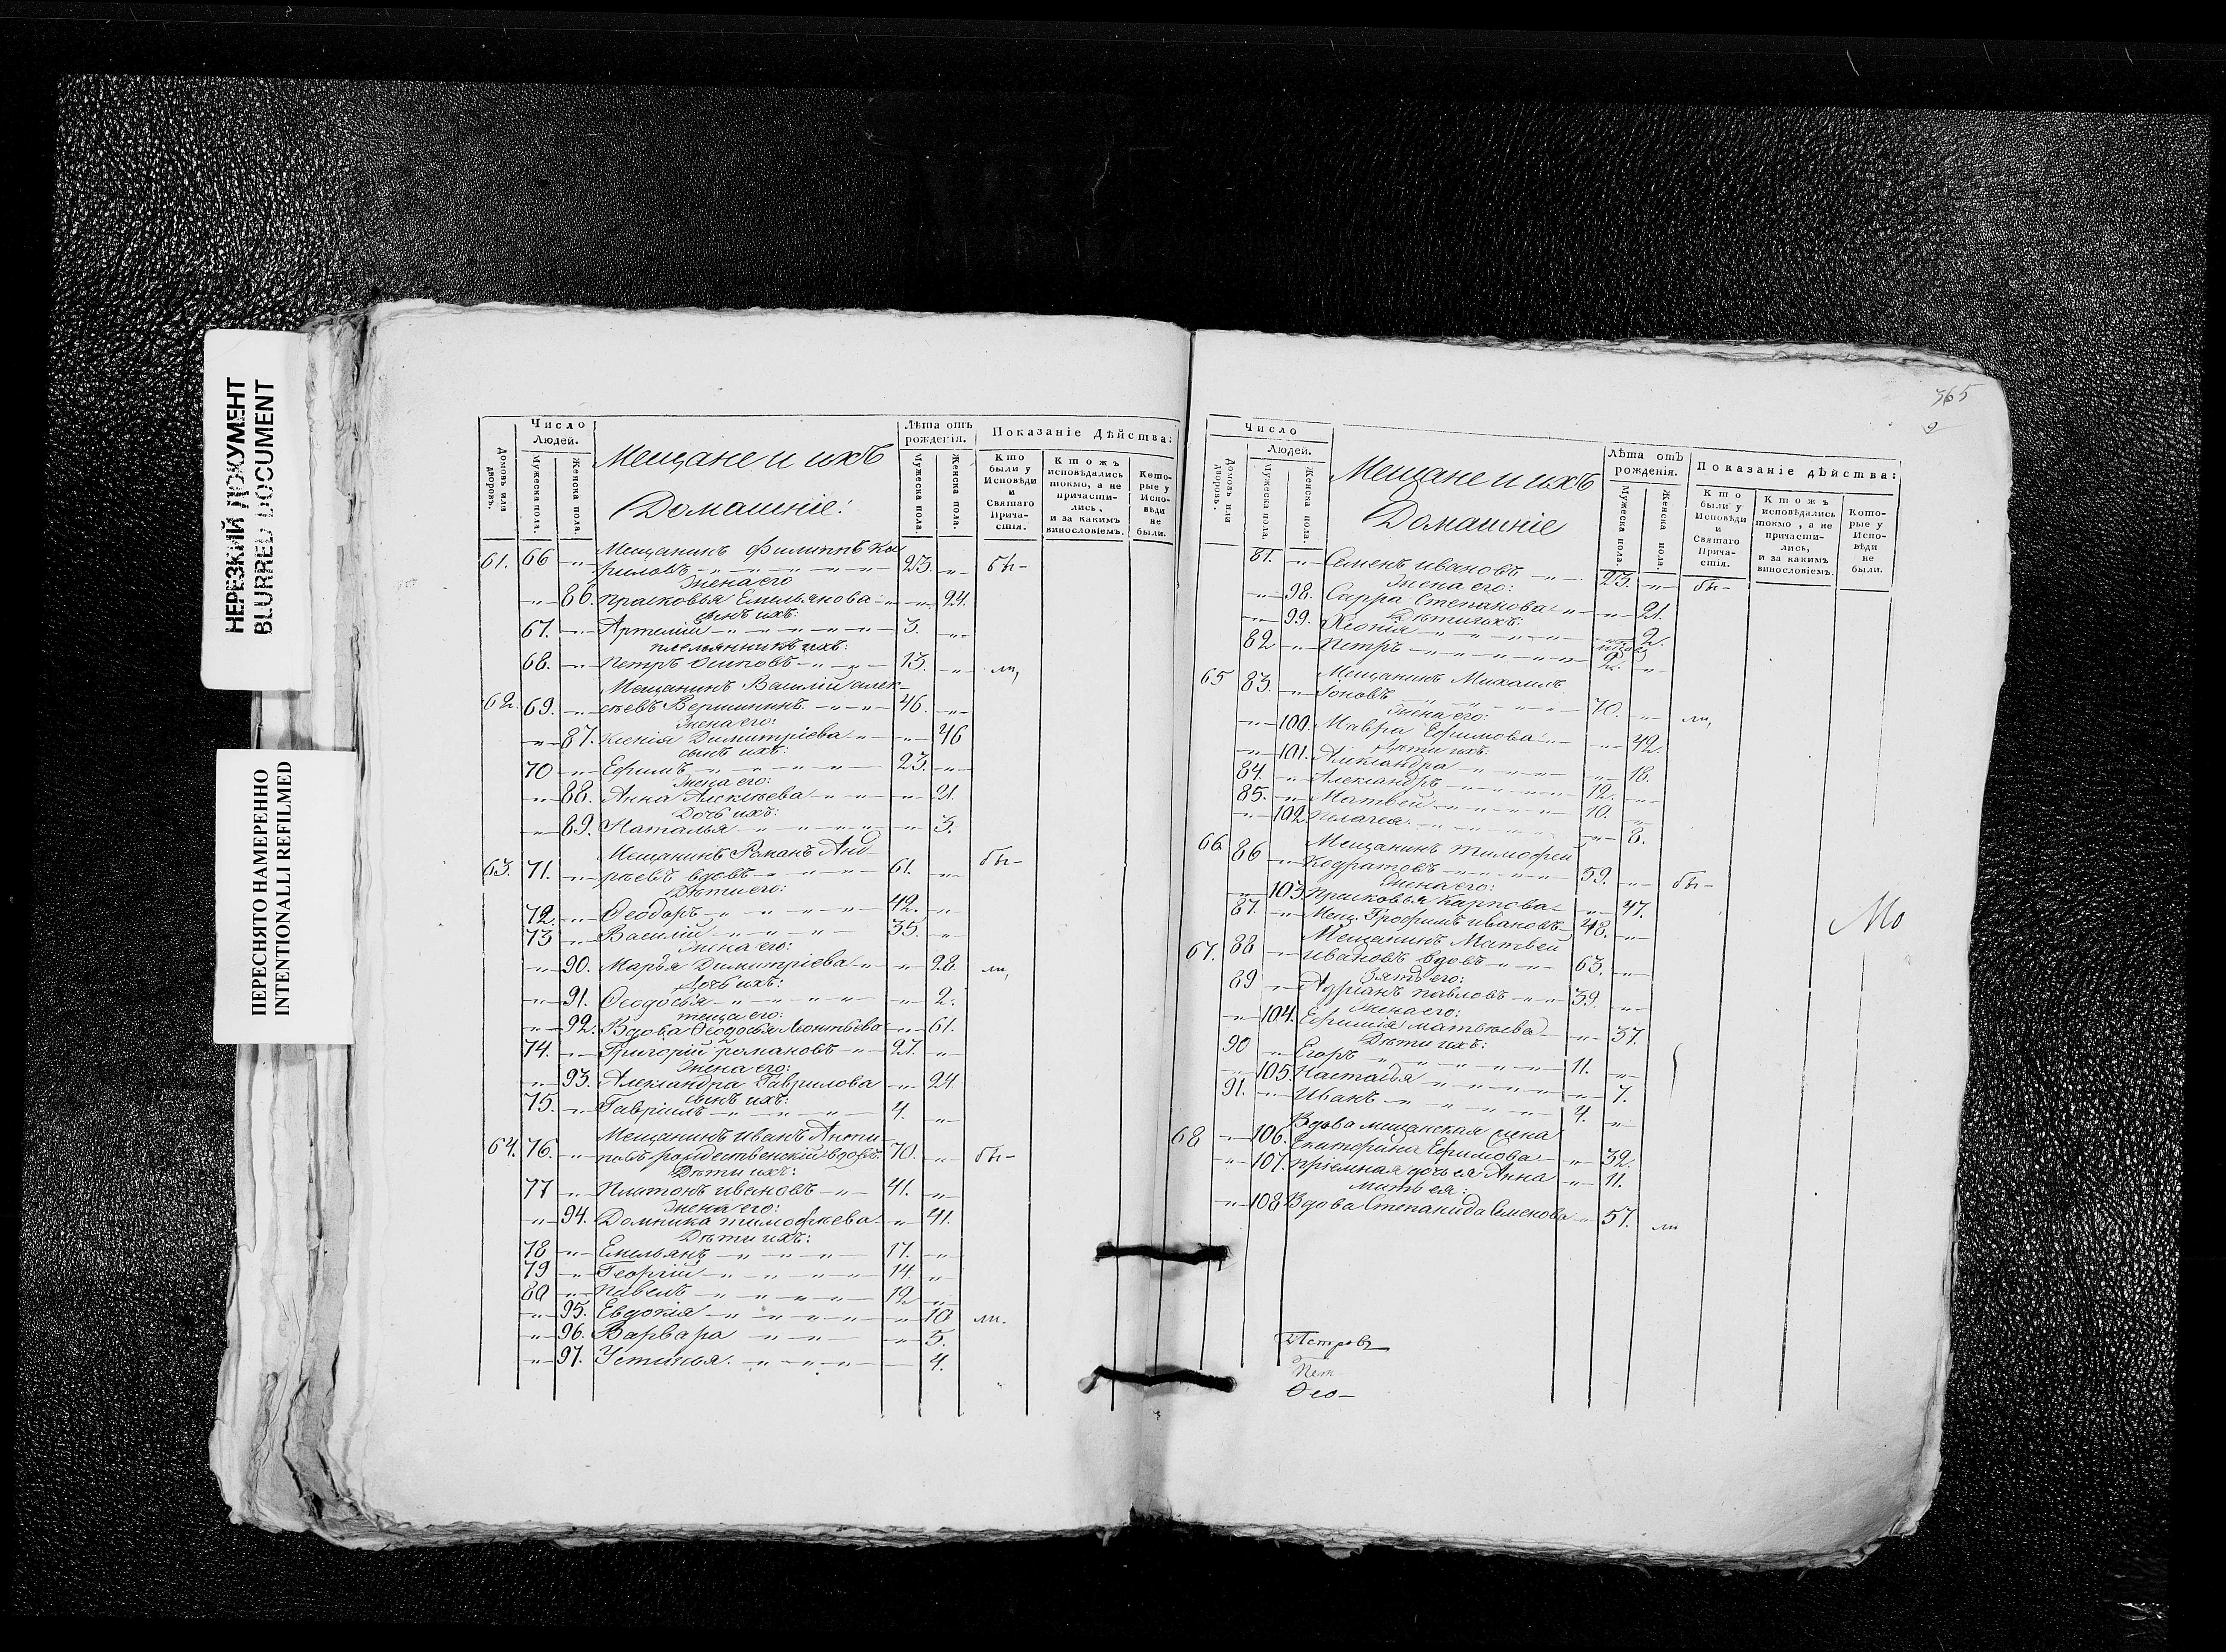 НЕРЕЗКИЙ ДОКУМЕНТ
BLURRED DOCUMENT
ПЕРЕСНЯТО НАМЕРЕННО
INTENTIONALLI REFILMED
Домовъ или дворовъ.
Число Людей.
Мужеска пола.
Женска пола.
Мещане и ихъ
Домашніе:
Лѣта отъ рожденія.
Мужеска пола.
Женска пола.
Показаніе дѣйства:
Кто были у Исповѣди и Святаго Причастія.
Ктожъ исповѣдались токмо, а не причастились, и за какимъ винословіемъ.
Которые у Исповѣди не были.
61. 66 Мещанинъ Филиппъ Ки
риловъ 23. бы-
Жена его
86. Прасковья Емельянова 24.
сынъ ихъ:
67. Артемій 3.
племянникъ ихъ:
68. Петръ Осиповъ 13. ли,
Мещанинъ Василій Алек-
62. 69. сѣевъ Вершининъ 46.
Жена его:
87. Ксенія Димитріева 46
сынъ ихъ:
70 Ефимъ 23.
Жена его:
88. Анна Алексѣева 21.
Дочь ихъ:
89. Наталья 3.
Мещанинъ Романъ Анд
63. 71. рѣевъ вдовъ 61. бы-
Дѣти его:
72 Ѳеодоръ 42.
73 Василій 35.
Жена его:
90. Марья Димитріева 28. ли,
Дочь ихъ:
91. Ѳеодосья 2.
теща его:
92. Вдова Ѳеодосья Леонтьева 61.
74. Григорій Романовъ 27.
Жена его:
93. Александра Гаврилова 24
сынъ ихъ:
75. Гавріилъ 4.
Мещанинъ Иванъ Анти
64. 76. повъ рождественскій вдовъ. 70. бы-
Дѣти ихъ:
77 Платонъ Ивановъ 41.
Жена его:
94. Домника Тимофѣева 41.
Дѣти ихъ:
78 Емельянъ 17.
79 Георгій 14.
80 Павелъ 12
95. Евдокія 10. ли.
96. Варвара 5.
97. Устинья 4.
365
9
Число Людей.
Домовъ или дворовъ.
Мужеска пола.
Женска пола.
Мещане и ихъ
Домашніе
Лѣта отъ рожденія.
Мужеска пола.
Женска пола.
Показаніе дѣйства:
Кто были у Исповѣди и Святаго Причастія.
Ктожъ исповѣдались токмо, а не причастились, и за какимъ винословіемъ.
Которые у Исповѣди не были.
81. Семенъ Ивановъ 23. бы-
Жена его:
98. Сарра Степанова 21.
Дѣти ихъ:
99. Хіонія 2.
82 Петръ
65 83. Мещанинъ Михаилъ
Іоновъ 70. ли,
Жена его:
100. Мавра Ефимова 42.
Дѣти ихъ:
101. Александра 18.
84. Александръ 12.
85. Матвей 10.
102 Пелагея 8.
66 86 Мещанинъ Тимофей
Кодратовъ 59. бы-
Жена его:
103 Прасковья Карпова 47.
87. Мещ. Трофимъ Ивановъ 48.
67. 88 Мещанинъ Матвей
Ивановъ вдовъ 63.
Зять его:
89 Адріанъ Павловъ 39.
Жена его:
104. Ефимія Матвѣева 37.
Дѣти ихъ:
90 Егоръ 11.
105. Настасья 7.
91. Иванъ 4.
Вдова мещанская жена
68 106. Екатерина Ефимова 32.
107. приемная дочь ея Анна 11.
Мать ея:
108 Вдова Степанида Семенова 57. ли
Мо
Петровъ
Пет
Ѳео-